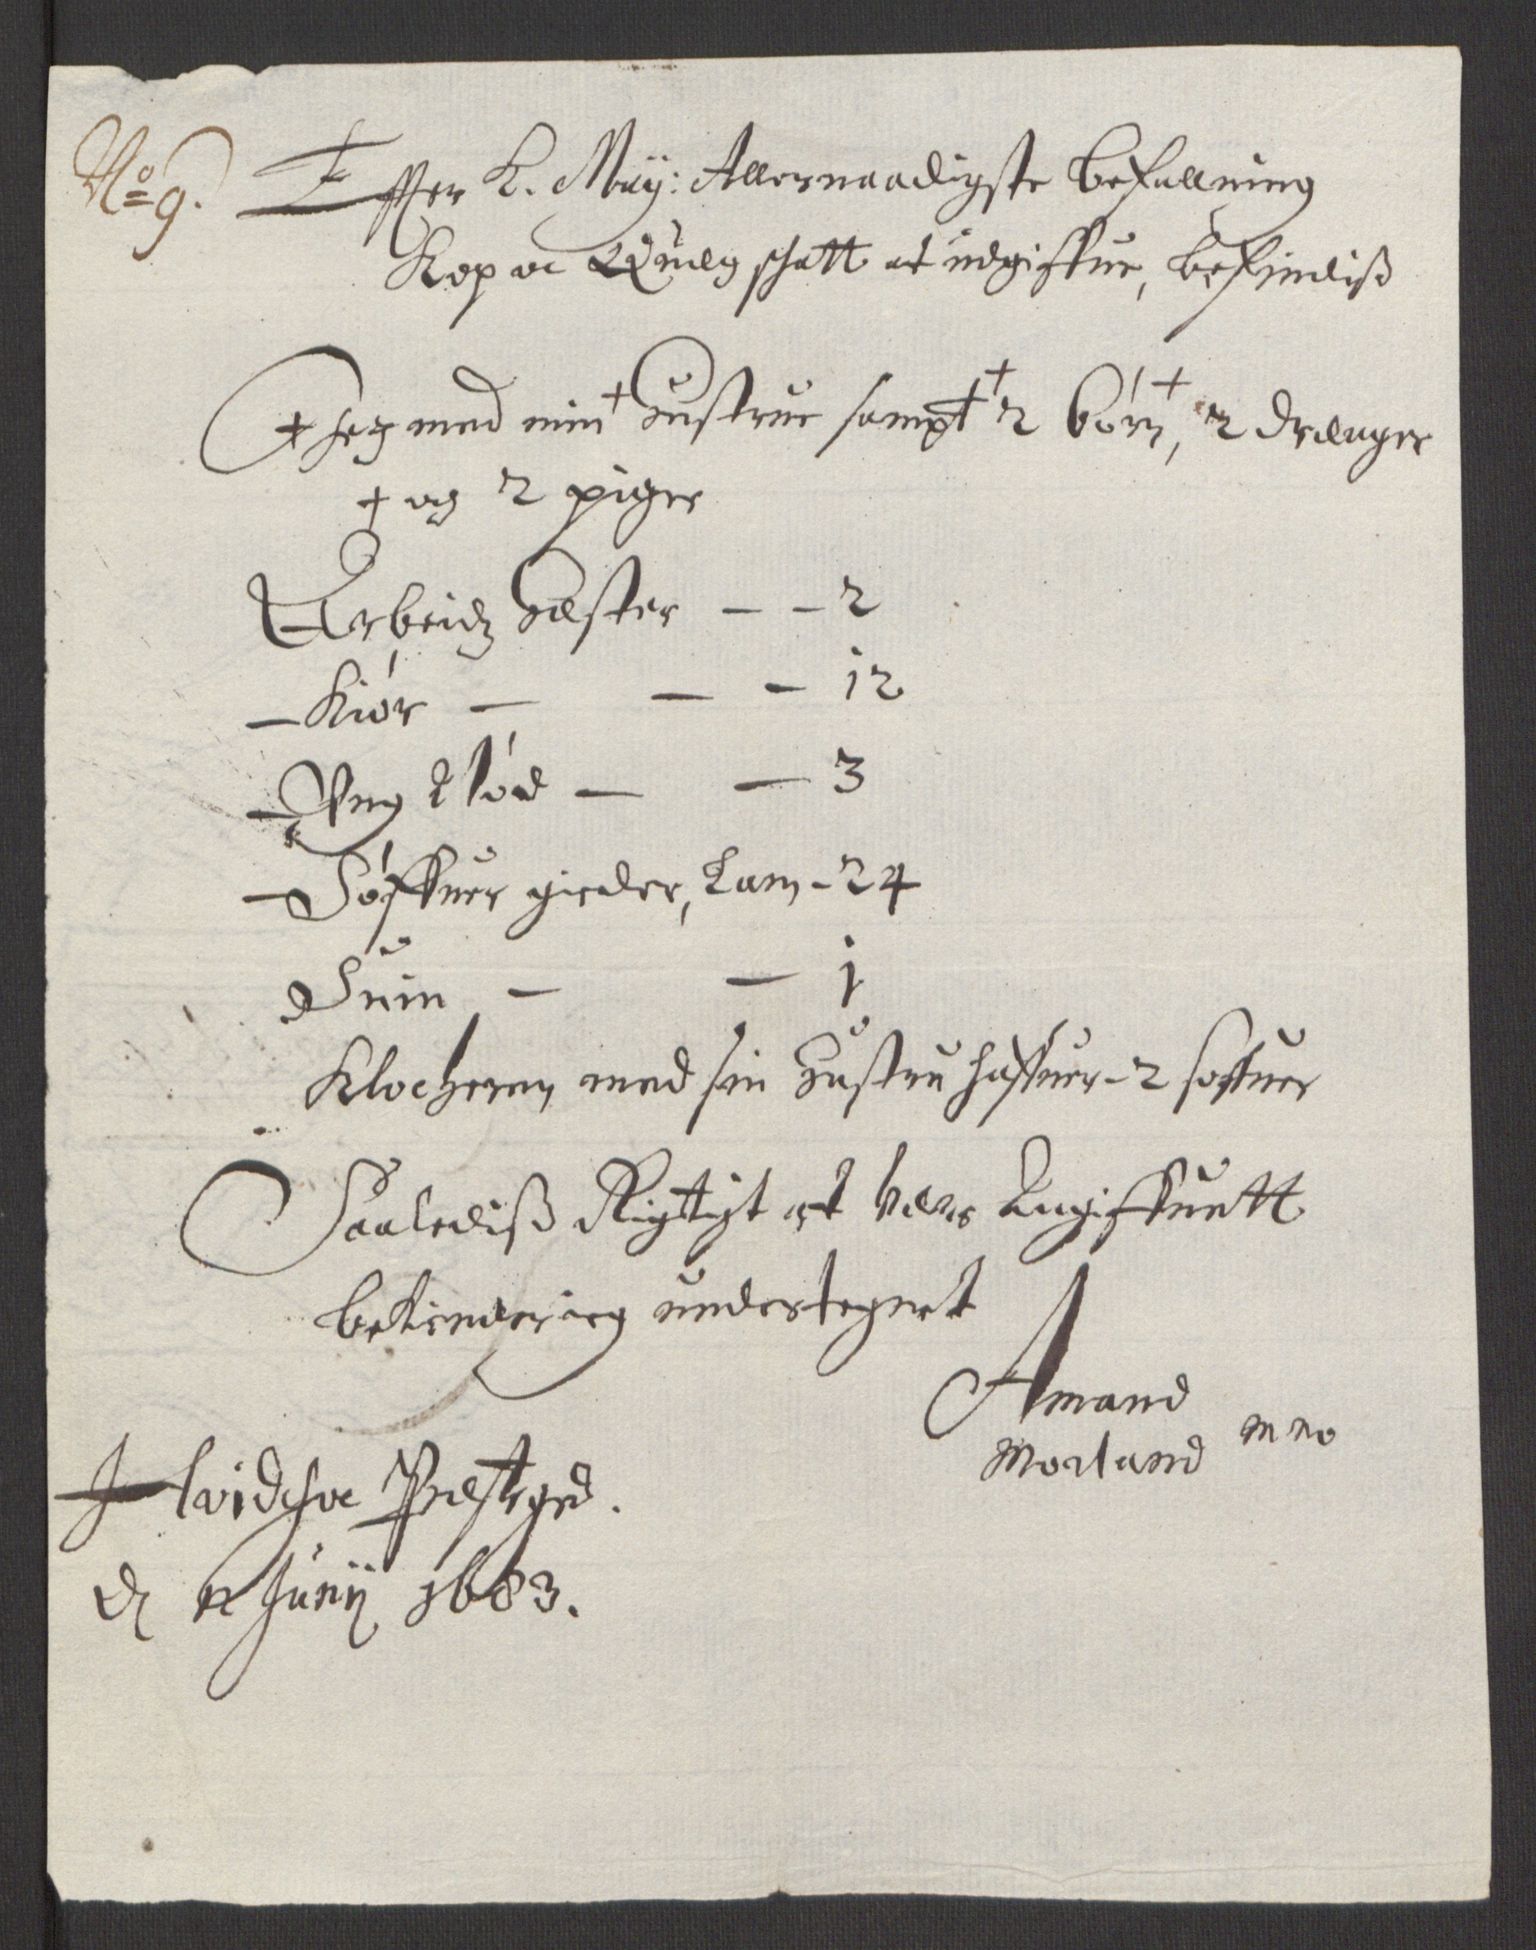 No 9. Effter K. May: Allernaadigste befallning
Kop oc Quæg schatt at udgiffue, befindiß
Jeg med min Hustrue sampt 2 börn, 2 drænger
og 2 piger
Arbeidz Hæster - - 2
- Kiör - - - 12
- Ung Nöd - - 3
- Söffuer gieder, Lam - 24
Suin - - 1
Klocheren med sin Hustru haffuer - 2 soffuer
Saalediß Rigtigt at være Angiffuett
bekiender ieg undertegnet
Amand
Morland mpp
Hvidesoe Præstegrd.
d Junij 1683.